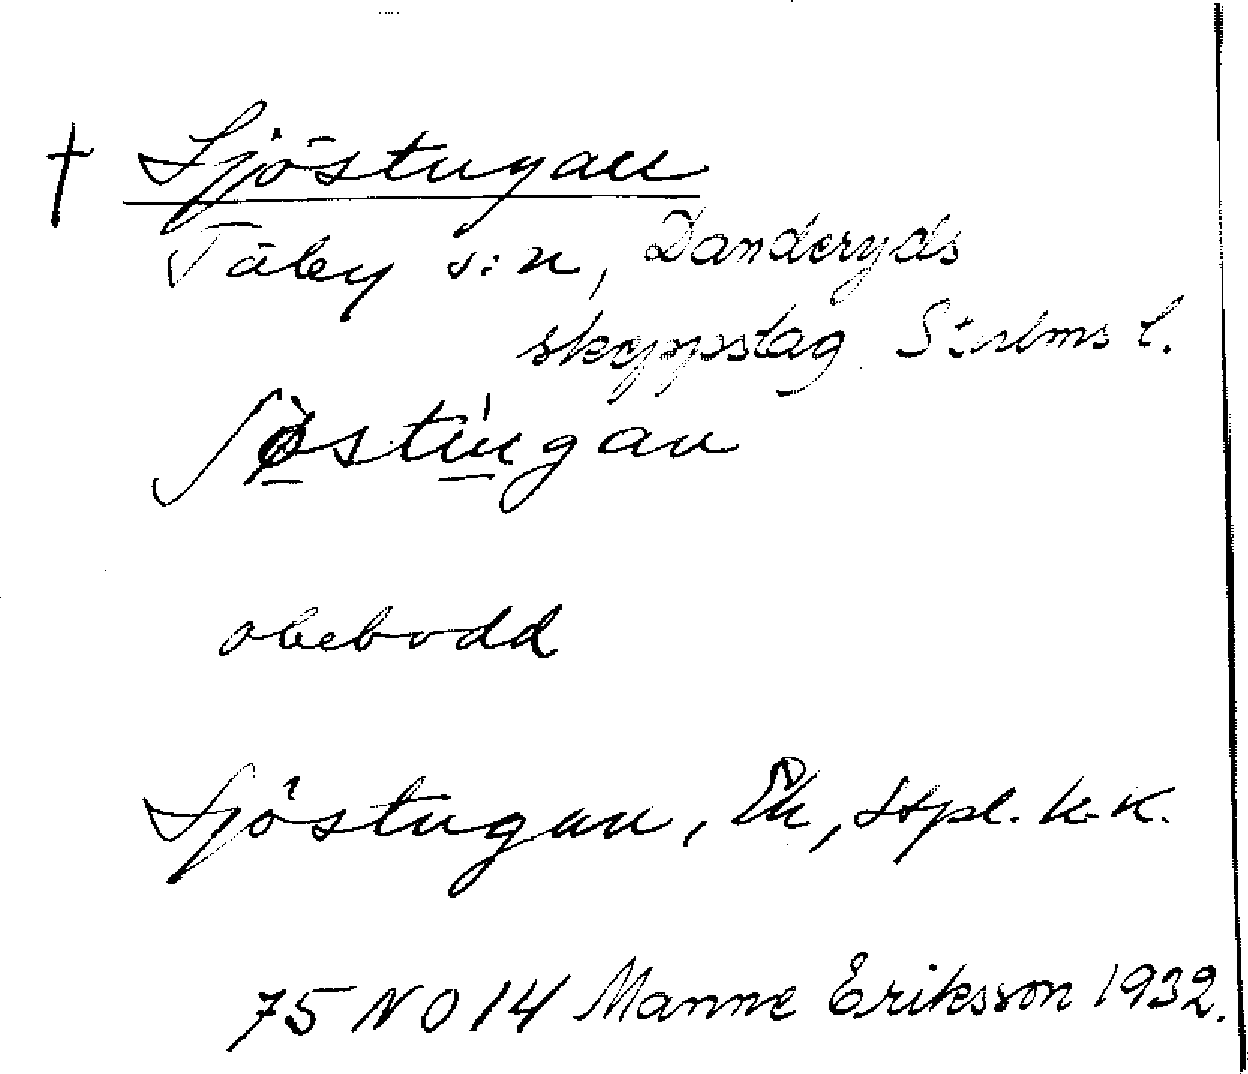 † Sjöstugan
Täby s:n, Danderyds
skeppslag. Sthlms l.
ʃö̀stúgan
obebodd
Sjöstugan, Ek, Stpl. k-k.
75 NO 14 Manne Eriksson 1932.